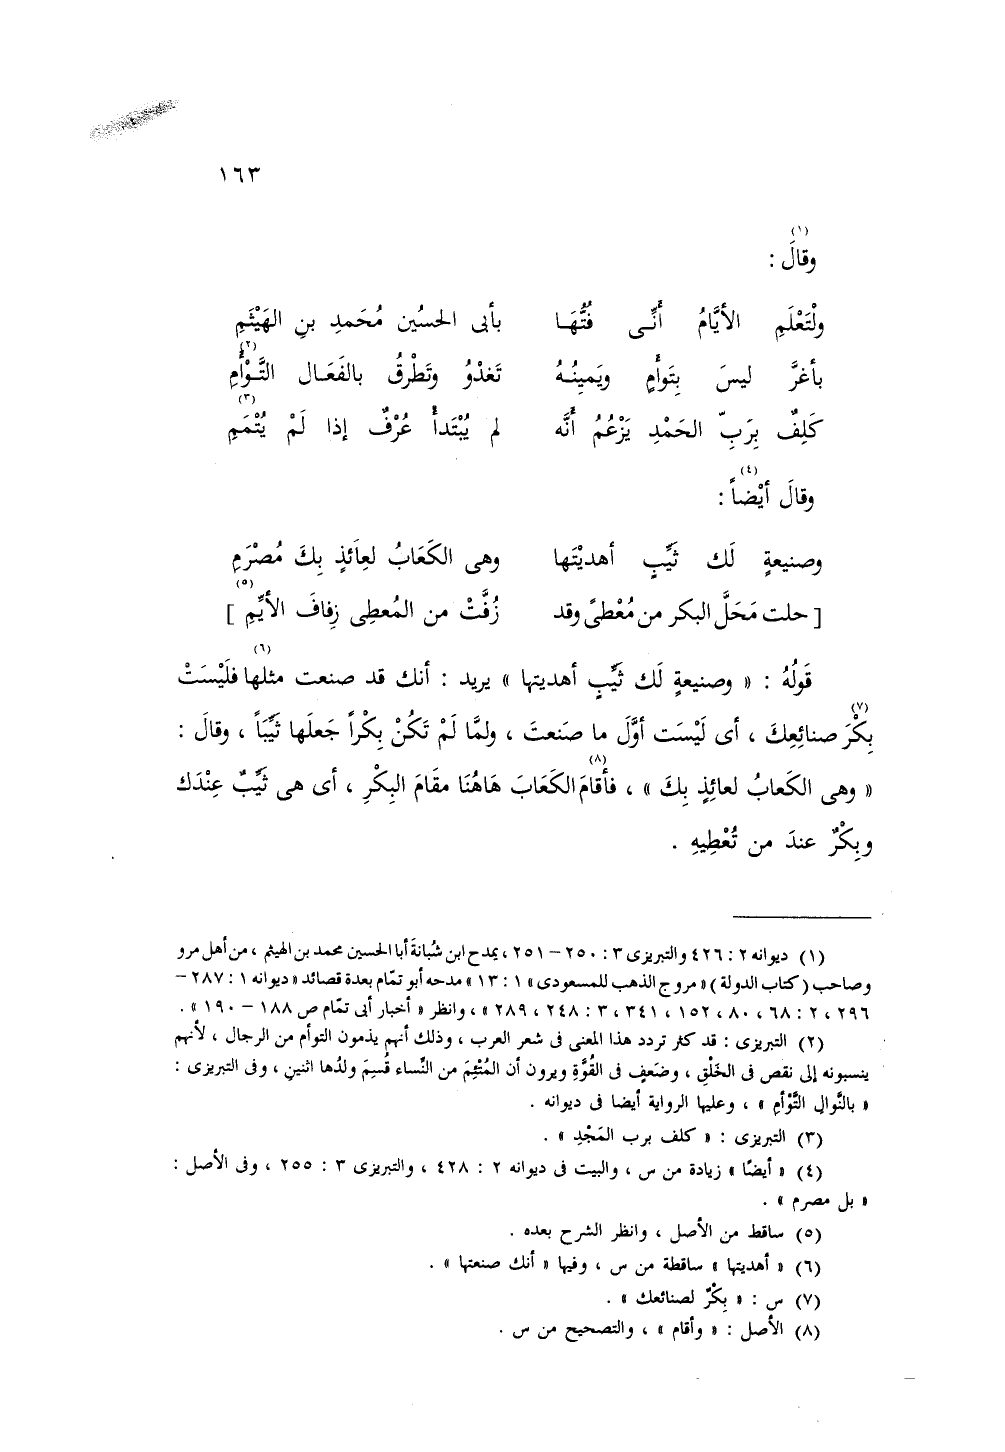 ١٦٣
(١)
وقالَ :
ولْتَعْلَمِ الأيَّامُ أنِّى فُتُّهَا بأبى الحسُين مُحَمدِ بنِ الهَيْثَمِ
(٢)
بأغرَّ ليسَ بِتوأمٍ ويَمينُهُ تَغدْوُ وتَطْرقُ بالفَعَال التَّوْأمِ
(٣)
كَلِفٌ بِرَبِّ الحَمْدِ يَزْعُمُ أنَّه لم يُبْتَدأْ عُرْفٌ إذا لَمْ يُتْمَمِ
(٤)
وقالَ أيْضاً :
وصنيعةٍ لَك ثَيِّبٍ أهديْتَها وهى الكَعَابُ لعِاَئذٍ بِكَ مُصْرَمِ
(٥)
[ حلت مَحَلَّ البكر من مُعْطىً وقد زُفَّتْ من المُعطِى زِفافَ الأيِّمِ ]
(٦)
قَولُهُ : « وصنيعةٍ لَك ثَيِّبٍ أهديتها » يريد : أنك قد صنعت مثلها فلَيْسَتْ
(٧)
بِكْرَ صنائِعِكَ ، أى لَيْسَت أوَّلَ ما صنَعتَ ، ولمَّا لَمْ تَكُنْ بِكْراً جَعلَها ثَيِّبَاً ، وقالَ :
(٨)
« وهى الكَعابُ لعائِذٍ بِكَ » ، فأَقامَ الكَعَابَ هَاهُنَا مقَامَ البِكْرِ ، أى هى ثَيِّبٌ عِنْدَك
وبِكْرٌ عندَ من تُعْطِيهِ .
(١) ديوانه ٢ : ٤٢٦ والتبريزى ٣ : ٢٥٠ – ٢٥١ ، يمدح ابن شُبانةَ أبا الحسين محمد بن الهيثم ، من أهل مرو
وصاحب (كتاب الدولة) « مروج الذهب للمسعودى » ١ : ١٣ » مدحه أبو تمّام بعدة قصائد « ديوانه ١ : ٢٨٧ –
٢٩٦ ، ٢ : ٦٨ ، ٨٠ ، ١٥٢ ، ٣٤١ ، ٣ : ٢٤٨ ، ٢٨٩ » ، وانظر « أخبار أبى تمّام ص ١٨٨ – ١٩٠ » .
(٢) التبريزى : قد كثر تردد هذا المعنى فى شعر العرب ، وذلك أنهم يذمون التوأم من الرجال ، لأنهم
ينسبونه إلى نقص فى الخَلْقِ ، وضَعفٍ فى القُوَّةِ ويرون أن المُتْئِمَ من النِّساء قُسِمَ ولدُها اثنينِ ، وفى التبريزى :
« بالنَّوالِ التَّوْأمِ » ، وعليها الرواية أيضا فى ديوانه .
(٣) التبريزى : « كلف برب المَجْدِ » .
(٤) « أيضًا » زيادة من س ، والبيت فى ديوانه ٢ : ٤٢٨ ، والتبريزى ٣ : ٢٥٥ ، وفى الأصل :
« بل مصرم » .
(٥) ساقط من الأصل ، وانظر الشرح بعده .
(٦) « أهديتها » ساقطة من س ، وفيها « أنك صنعتها » .
(٧) س : « بِكْرٌ لصنائعك » .
(٨) الأصل : « وأقام » ، والتصحيح من س .